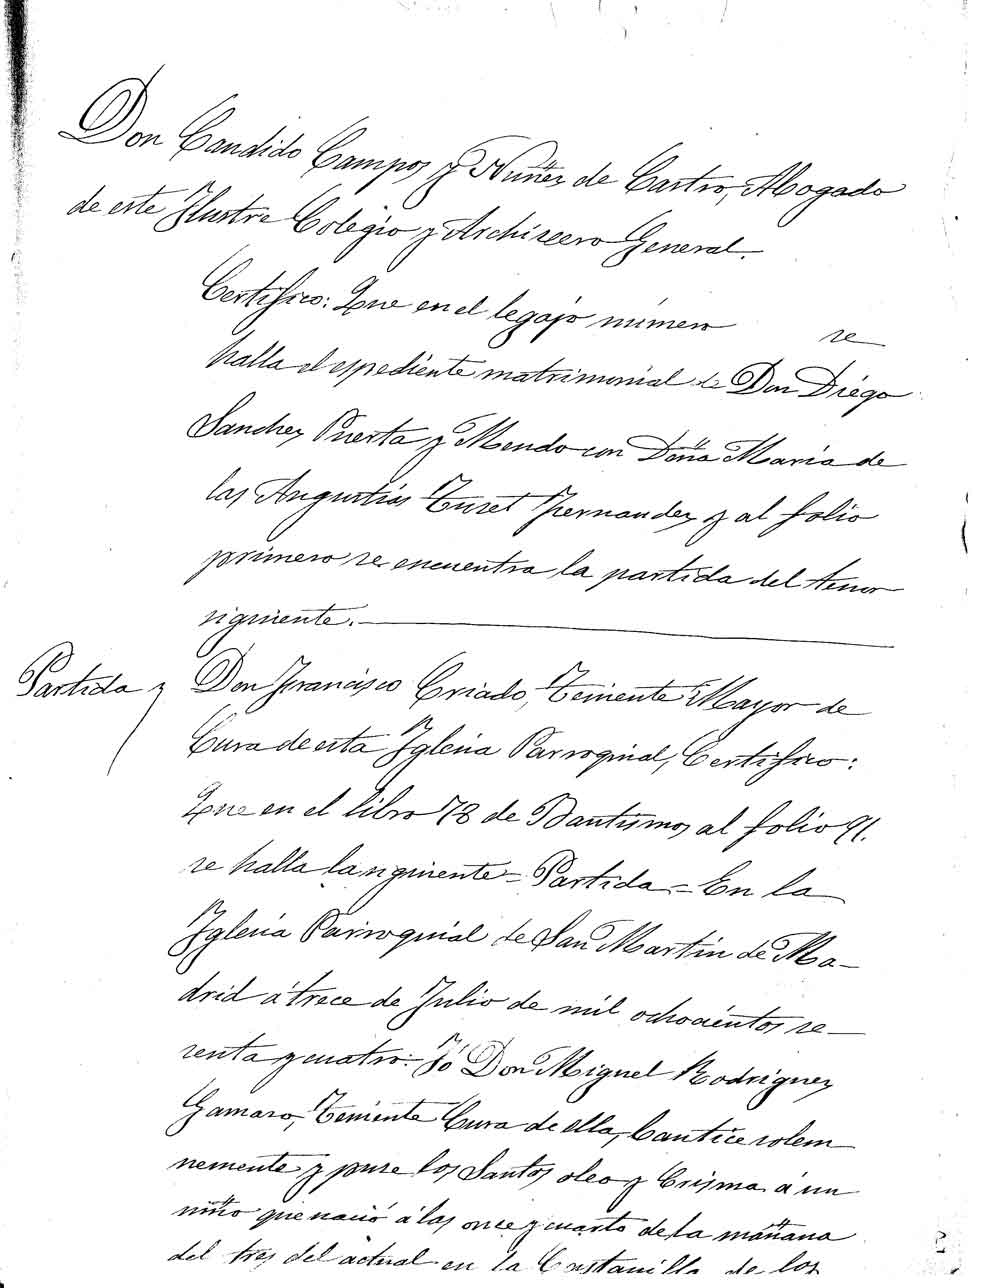 Don Candido Campos y Nuñez de Castro, Abogado
de este Ilustre Colegio y Archivero General.
Certifico: Que en el legajo número se
halla el espediente matrimonial de Don Diégo
Sanchez Puerta y Mendo con Doña María de
las Angustias Turet Fernandez y al folio
primero se encuentra la partida del tenor
siguiente.
Partida Don Francisco Criado, Teniente Mayor de
Cura de esta Iglesia Parroquial, Certifico:
Que en el libro 78 de Bautismos al folio 91.
se halla la siguiente = Partida = En la
Iglesia Parroquial de San Martin de Ma-
drid á trece de Julio de mil ochocientos se-
senta y cuatro: Yó Don Miguel Rodriguez
Gamazo, Teniente Cura de ella, bauticé solem
nemente y puse los Santos oleo y Crisma á un
niño que nació á las once y cuarto de la mañana
del tres del actual en la Costanilla de los